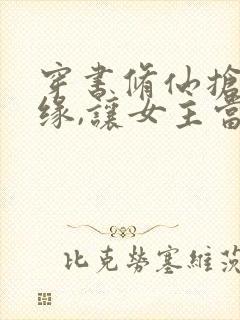 穿書脩仙搶
緣,讓女主當
比克勞塞維茨